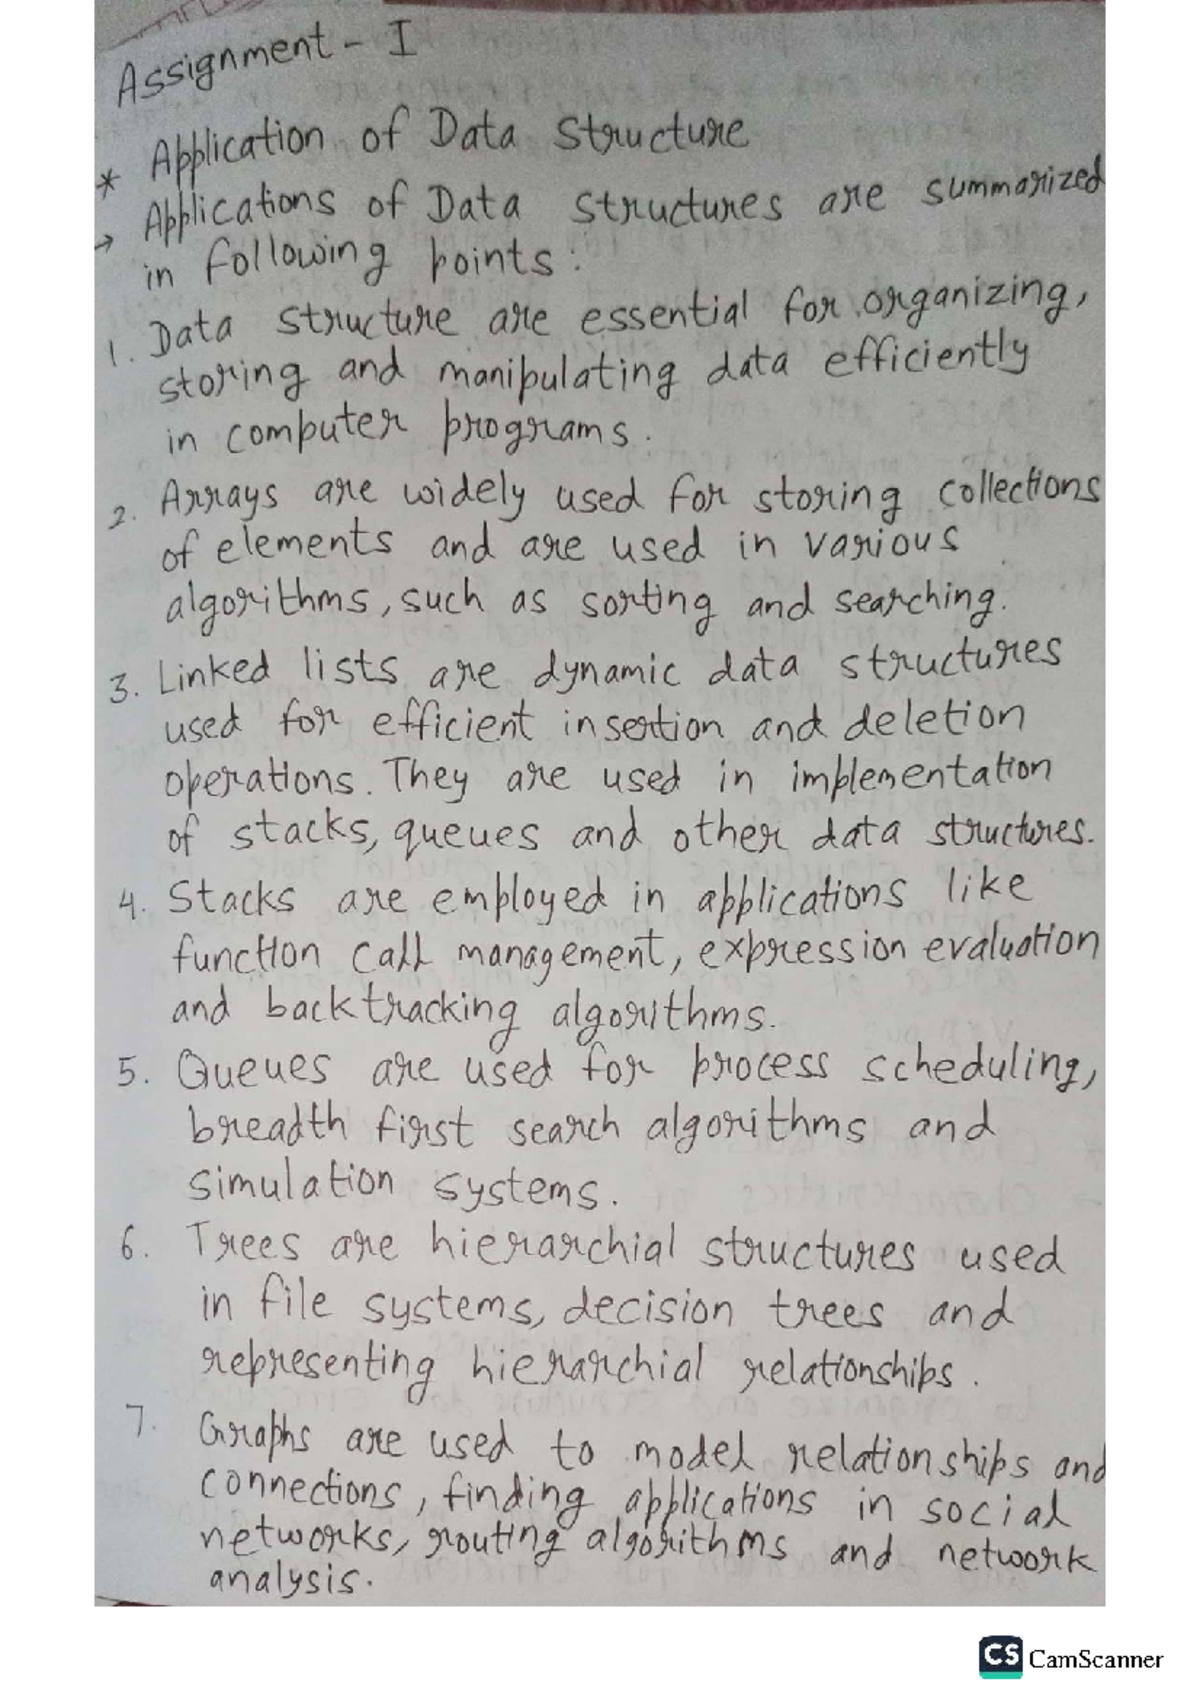 Assignment - I
* Application of Data Structure
→ Applications of Data structures are summarized
in following points:
1. Data structure are essential for organizing,
storing and manipulating data efficiently
in computer programs.
2. Arrays are widely used for storing collections
of elements and are used in various
algorithms, such as sorting and searching.
3. Linked lists are dynamic data structures
used for efficient insertion and deletion
operations. They are used in implementation
of stacks, queues and other data structures.
4. Stacks are employed in applications like
function call management, expression evaluation
and backtracking algorithms.
5. Queues are used for process scheduling,
breadth first search algorithms and
simulation systems.
6. Trees are hierarchial structures used
in file systems, decision trees and
representing hierarchial relationships.
7. Graphs are used to model relationships and
connections, finding applications in social
networks, routing algorithms and network
analysis.
CS CamScanner